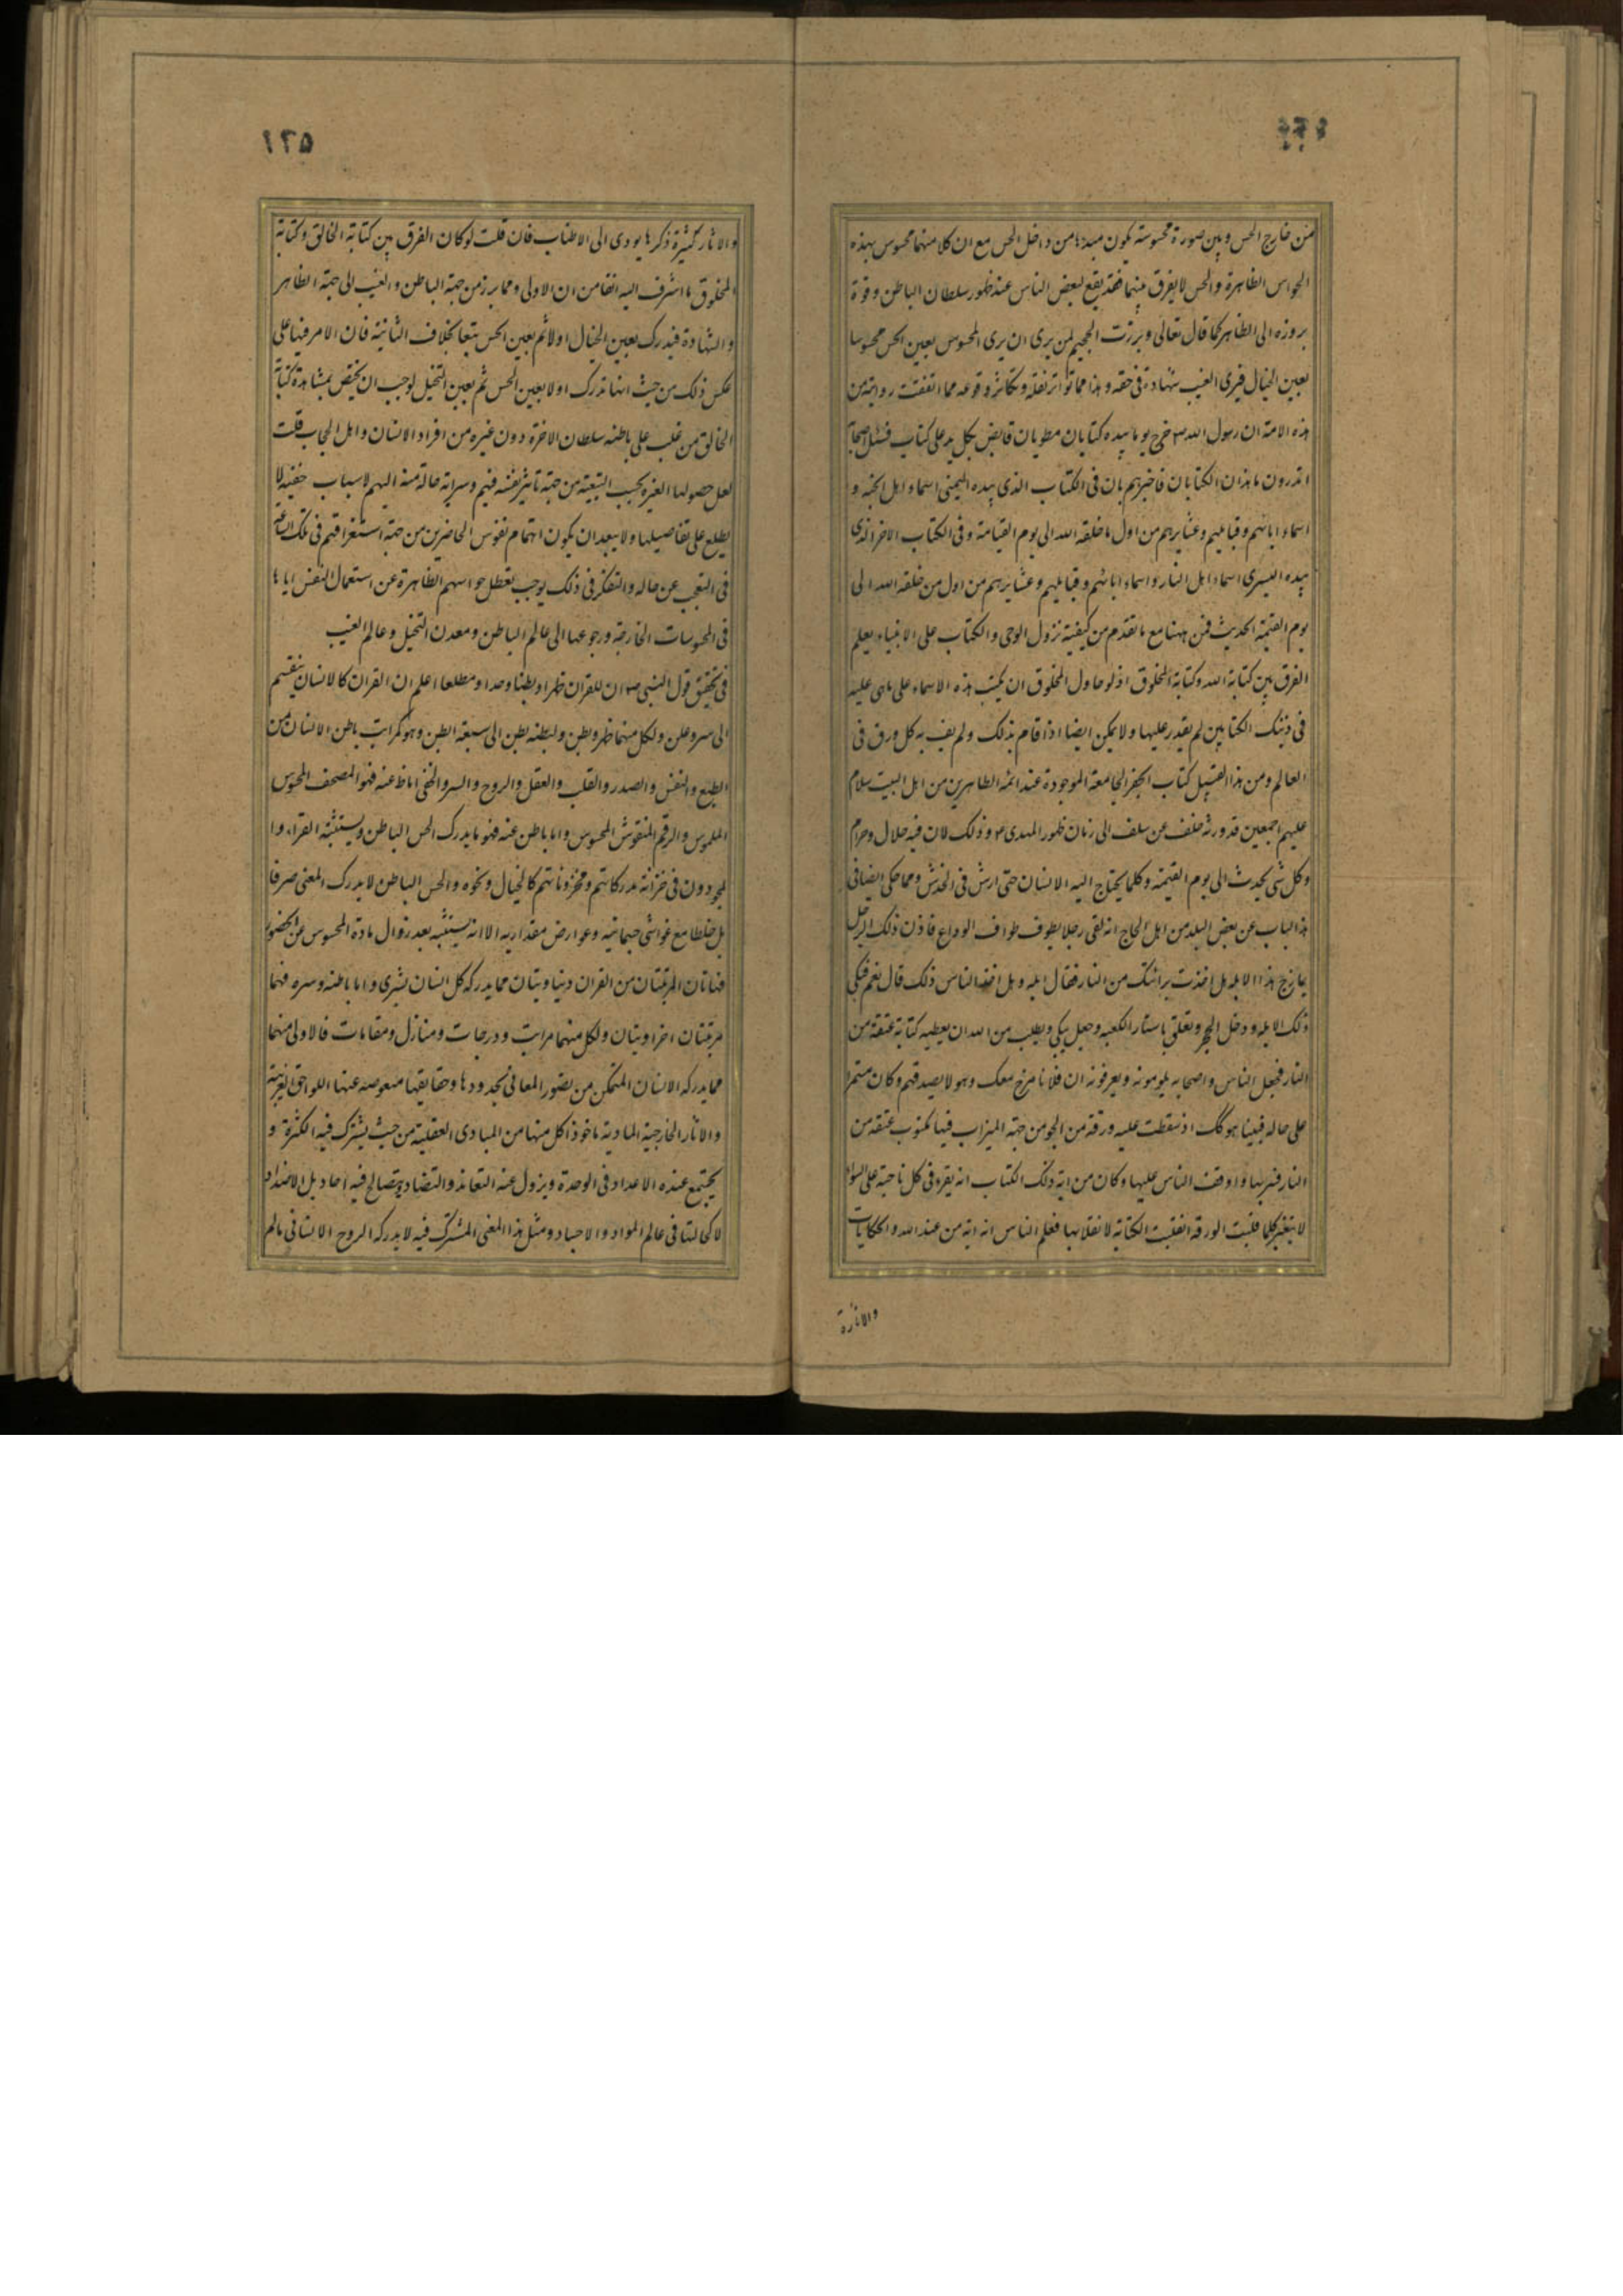 من خارج الحس وبين صورة محسوسة يكون مبدءها من داخل الحس مع ان كلا منهما محسوس بهذه
الحواس الظاهرة والحس لا يفرق بينهما فقد يقع لبعض الناس عند ظهور سلطان الباطن وقوة
بروزه الى الظاهر كما قال تعالى وبرزت الجحيم لمن يرى ان يرى المحسوس بعين الحس محسوسا
بعين الخيال فيرى الغيب شهادة فى حقه وهذا مما تواتر نقله وتكاثر وقوعه مما اتفقت روايته من
هذه الامة ان رسول الله ص خرج يوما بيده كتابان مطويان قابض بكل يد على كتاب فسئل اصحابه
اتدرون ما هذان الكتابان فاخبرهم بان فى الكتاب الذى بيده اليمنى اسماء اهل الجنة و
اسماء ابائهم وقبايلهم وعشايرهم من اول ما خلقه الله الى يوم القيامة وفى الكتاب الاخر الذى
بيده اليسرى اسماء اهل النار واسماء ابائهم وقبايلهم وعشايرهم من اول من خلقه الله الى
يوم القيمة الحديث فمن ههنا مع ما تقدم من كيفية نزول الوحى والكتاب على الانبياء يعلم
الفرق بين كتابة الله وكتابة المخلوق اذ لو حاول المخلوق ان يكتب هذه الاسماء على ما هى عليه
فى ذينك الكتابين لم يقدر عليها ولا يمكن ايضا اذا قام بذلك ولم يف به كل ورق فى
العالم ومن هذا القبيل كتاب الجفر الجامعة الموجودة عند ائمة الطاهرين من اهل البيت سلام
عليهم اجمعين قد ورثه خلف عن سلف الى زمان ظهور المهدى ع وذلك لان فيه حلال وحرام
وكل شى يحدث الى يوم القيمة وكلما يحتاج اليه الانسان حتى ارش فى الخدش ومما حكى ايضا فى
هذا الباب عن بعض البلد من اهل الحاج انه لقى رجلا يطوف طواف الوداع فاذن ذلك الرجل
يمازح هذا الابله بل اخذت براتك من النار فقال ابله وهل اخذ الناس ذلك قال نعم فبكى
ذلك الابله ودخل الحجر وتعلق باستار الكعبه وجعل يبكى ويطلب من الله ان يعطيه كتابة عتقه من
النار فجعل الناس واصحابه يلومونه ويعرفونه ان فلانا مزح معك وهو لا يصدقهم وكان مستمرا
على حاله فبينا هو كك اذ سقطت عليه ورقة من الجو من جهة الميزاب فيها مكتوب عتقه من
النار فسر بها واوقف الناس عليها وكان من اية ذلك الكتاب انه يقرء فى كل ناحية على السواء
لا يتغير كلما قلبت الورقه انقلبت الكتابة لانقلابها فعلم الناس انه اية من عند الله والحكايات
١٢٥
والاثار كثيرة ذكرها يودى الى الاطناب فان قلت لو كان الفرق بين كتابة الخالق وكتابة
المخلوق ما اشرف اليه انفا من ان الاولى ومما برز من جهة الباطن والغيب الى جهة الظاهر
والشهادة فيدرك بعين الخيال اولا ثم بعين الحس تبعا بخلاف الثانية فان الامر فيها على
عكس ذلك من حيث انها تدرك اولا بعين الحس ثم بعين التخيل لوجب ان يختص بمشاهدة كتابة
الخالق من غلب على باطنه سلطان الاخرة دون غيره من افراد الانسان واهل الحجاب قلت
لعل حصولها لغيره بحسب التبعية من جهة تاثير نفسه فيهم وسراية حاله منه اليهم لاسباب خفية لا
يطلع على تفاصيلها ولا يبعد ان يكون اتهمام نفوس الحاضرين من جهة استغراقهم فى تلك الساعة
فى التعجب عن حاله والتفكر فى ذلك يوجب تعطل حواسهم الظاهرة عن استعمال النفس اياها
فى المحسوسات الخارجة ورجوعها الى عالم الباطن ومعدن التخيل وعالم الغيب
فى تحقيق قول النبى ص ان للقران ظهرا وبطنا وحدا ومطلعا اعلم ان القران كالانسان ينقسم
الى سر وعلن ولكل منهما ظهر وبطن ولبطنه بطن الى سبعة ابطن وهو كمراتب باطن الانسان من
الطبع والنفس والصدر والقلب والعقل والروح والسر والخفى اما ظ عنه فهو المصحف المحسوس
الملموس والرقم المنقوش المحسوس واما باطن عنه فهو ما يدرك الحس الباطن ويستثبته القراء وا
لمجودون فى خزانة مدركاتهم ومخزوناتهم كالخيال ونحوه والحس الباطن لا يدرك المعنى صرفا
بل خلطا مع غواشى جسمانية وعوارض مقدارية الا انه يستثبته بعد زوال مادة المحسوس عن الحضور
فهاتان المرتبتان من القران دنياويتان مما يدركه كل انسان بشرى واما باطنه وسره فهما
مرتبتان اخراويتان ولكل منهما مراتب ودرجات ومنازل ومقامات فالاولى منهما
مما يدركه الانسان المتمكن من تصور المعانى بحدودها وحقايقها منفوصه عنها اللواحق الغريبة
والاثار الخارجية المادية ماخوذا كل منها من المبادى العقلية من حيث يشترك فيه الكثرة و
يجتمع عنده الاعداد فى الوحدة ويزول عنه التعاند والتضاد ويتصالح فيه احاد بل الاضداد
لا كحالتنا فى عالم المواد والاجساد ومثل هذا المعنى المشترك فيه لا يدركه الروح الانسانى مالم